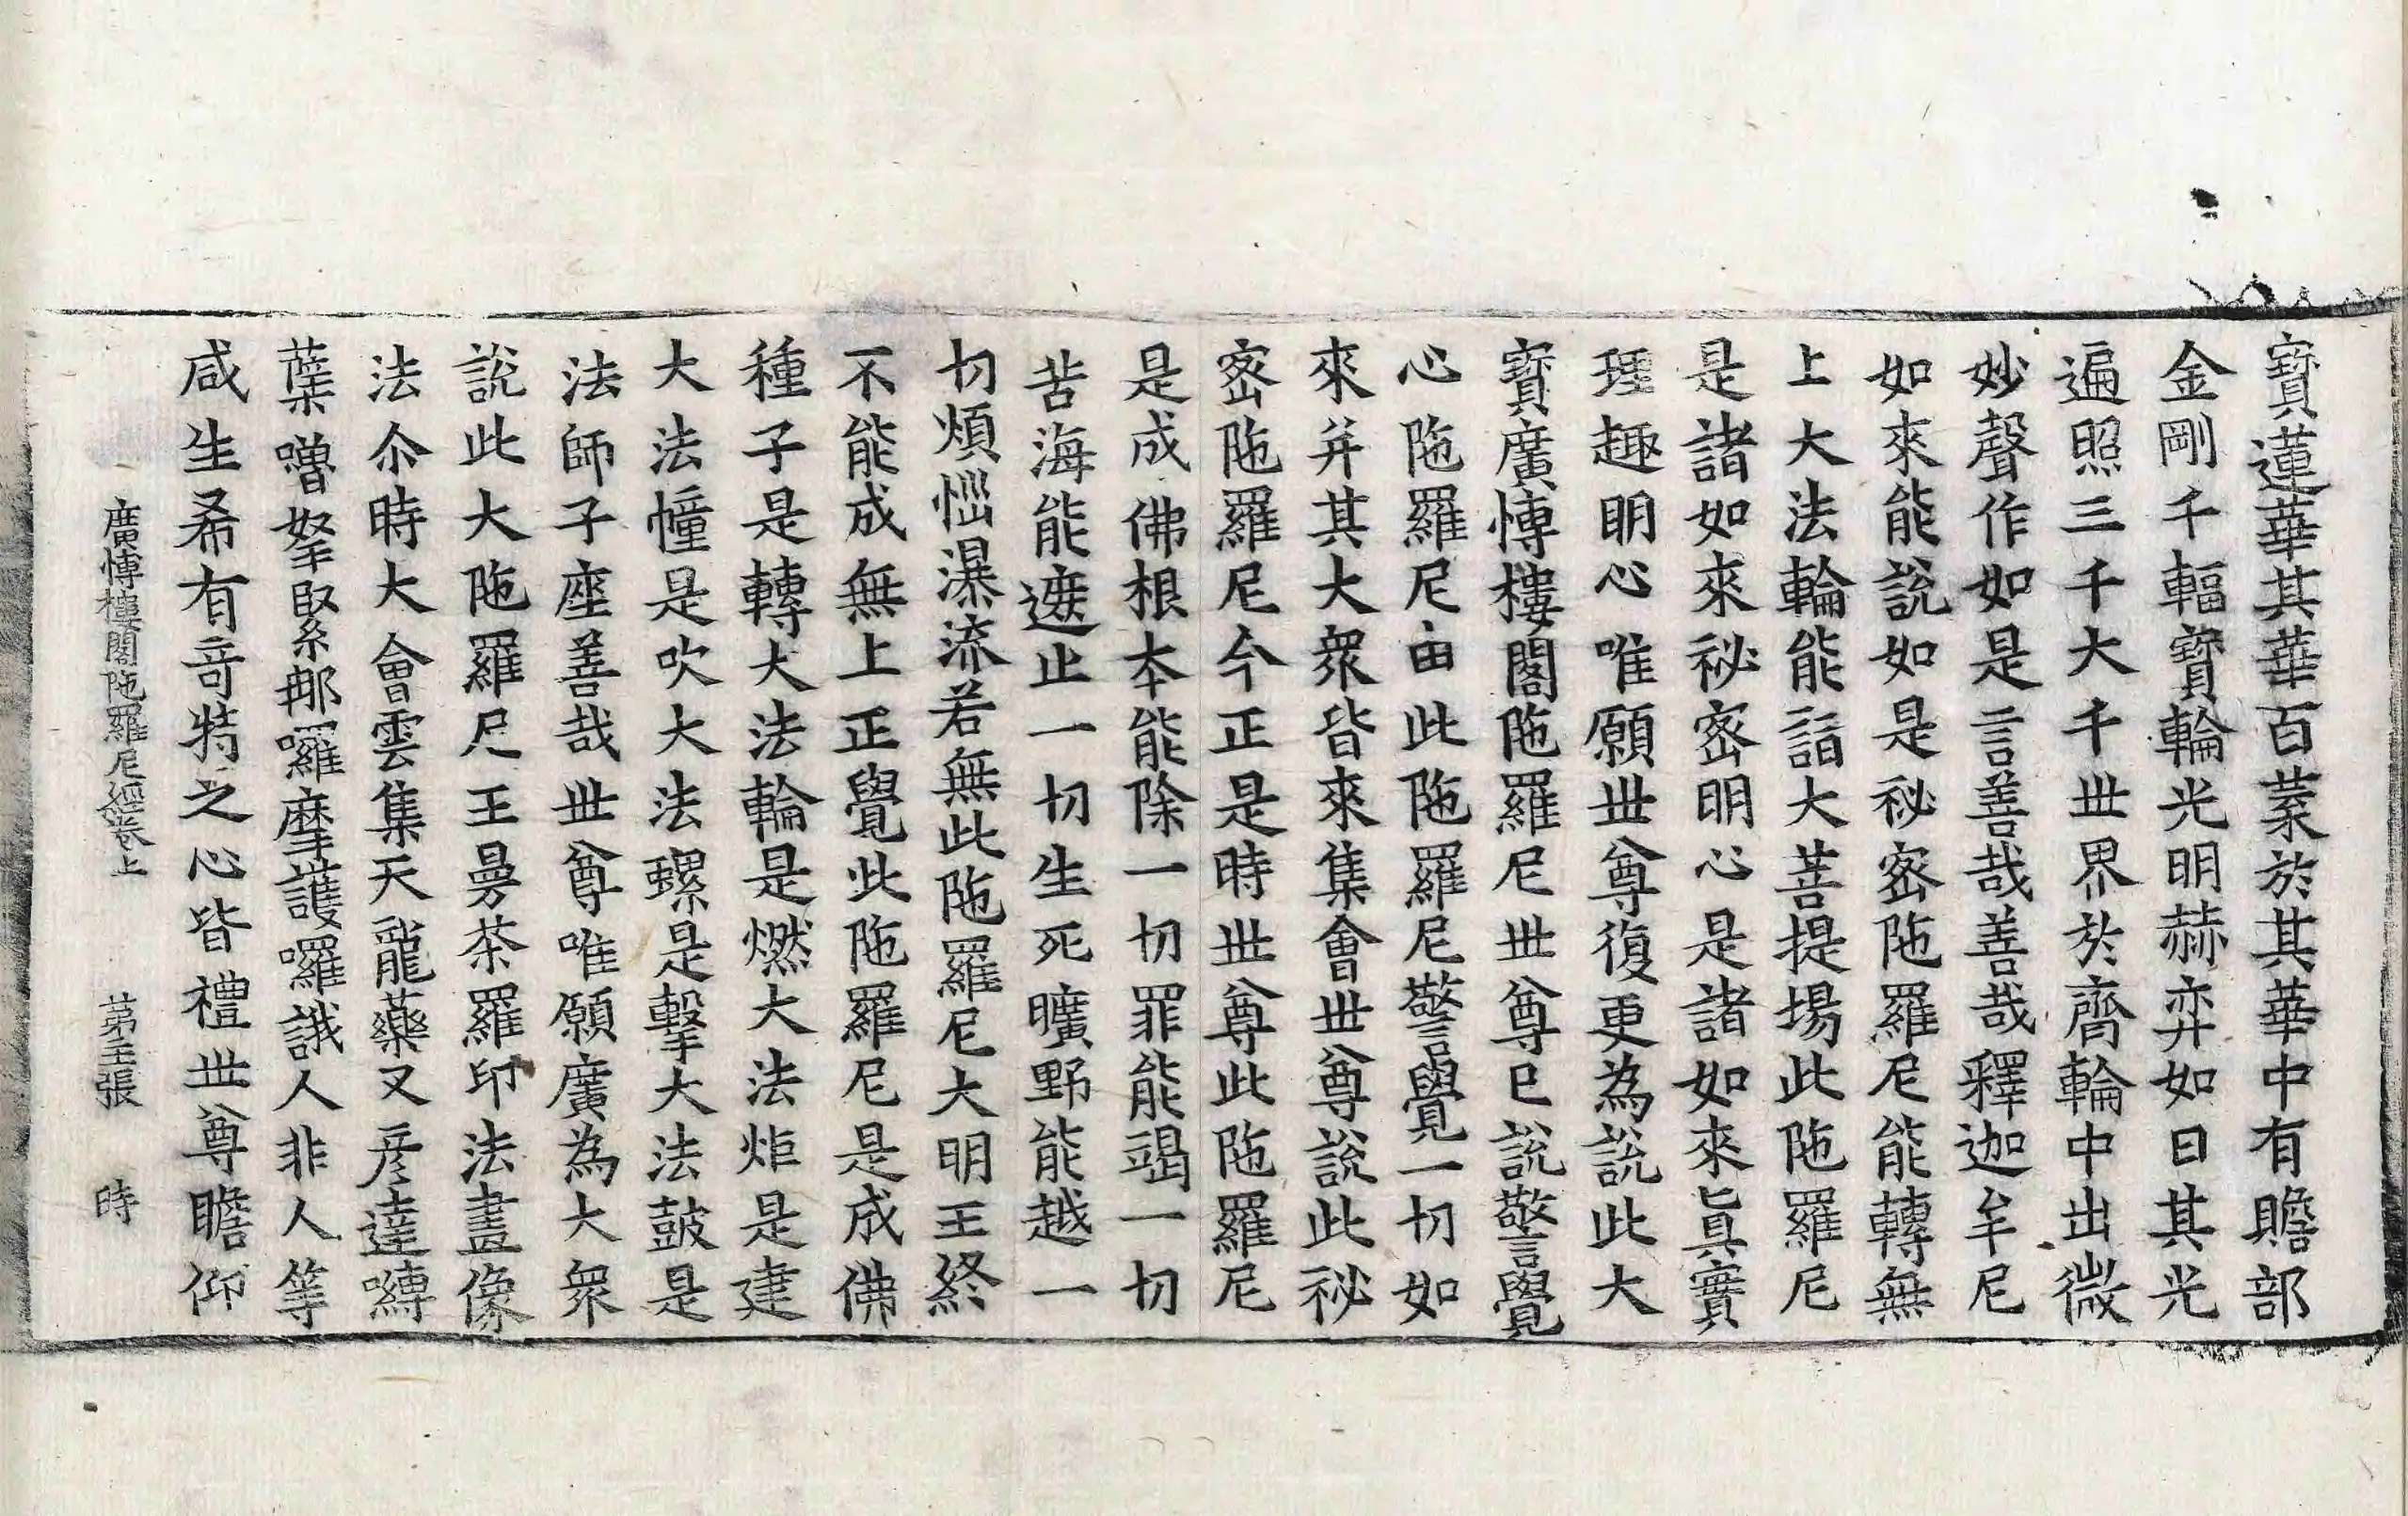 寶蓮華其華百蘂於其華中有贍部
金剛千輻寶輪光明赫弈如日其光
遍照三千大千世界於齊輪中出微
妙聲作如是言善哉善哉釋迦牟尼
如來能說如是祕密陁羅尼能轉無
上大法輪能詣大菩提場此陁羅尼
是諸如來祕密明心是諸如來眞實
理趣明心唯願世尊復更為說此大
寶廣愽樓閣陁羅尼世尊已說警覺
心陁羅尼由此陁羅尼警覺一切如
來幷其大衆皆來集會世尊說此祕
密陁羅尼今正是時世尊此陁羅尼
是成佛根本能除一切罪能竭一切
苦海能遮止一切生死曠野能越一
切煩惱瀑流若無此陁羅尼大明王終
不能成無上正覺此陁羅尼是成佛
種子是轉大法輪是燃大法炬是建
大法幢是吹大法螺是擊大法鼓是
法師子座善哉世尊唯願廣為大衆
說此大陁羅尼王曼茶羅印法畫像
法尒時大會雲集天龍藥叉彦達嚩
蘗嚕拏緊那囉摩護囉誐人非人等
咸生希有竒特之心皆禮世尊瞻仰
廣愽樓閣陁羅尼經卷上 苐三張 時